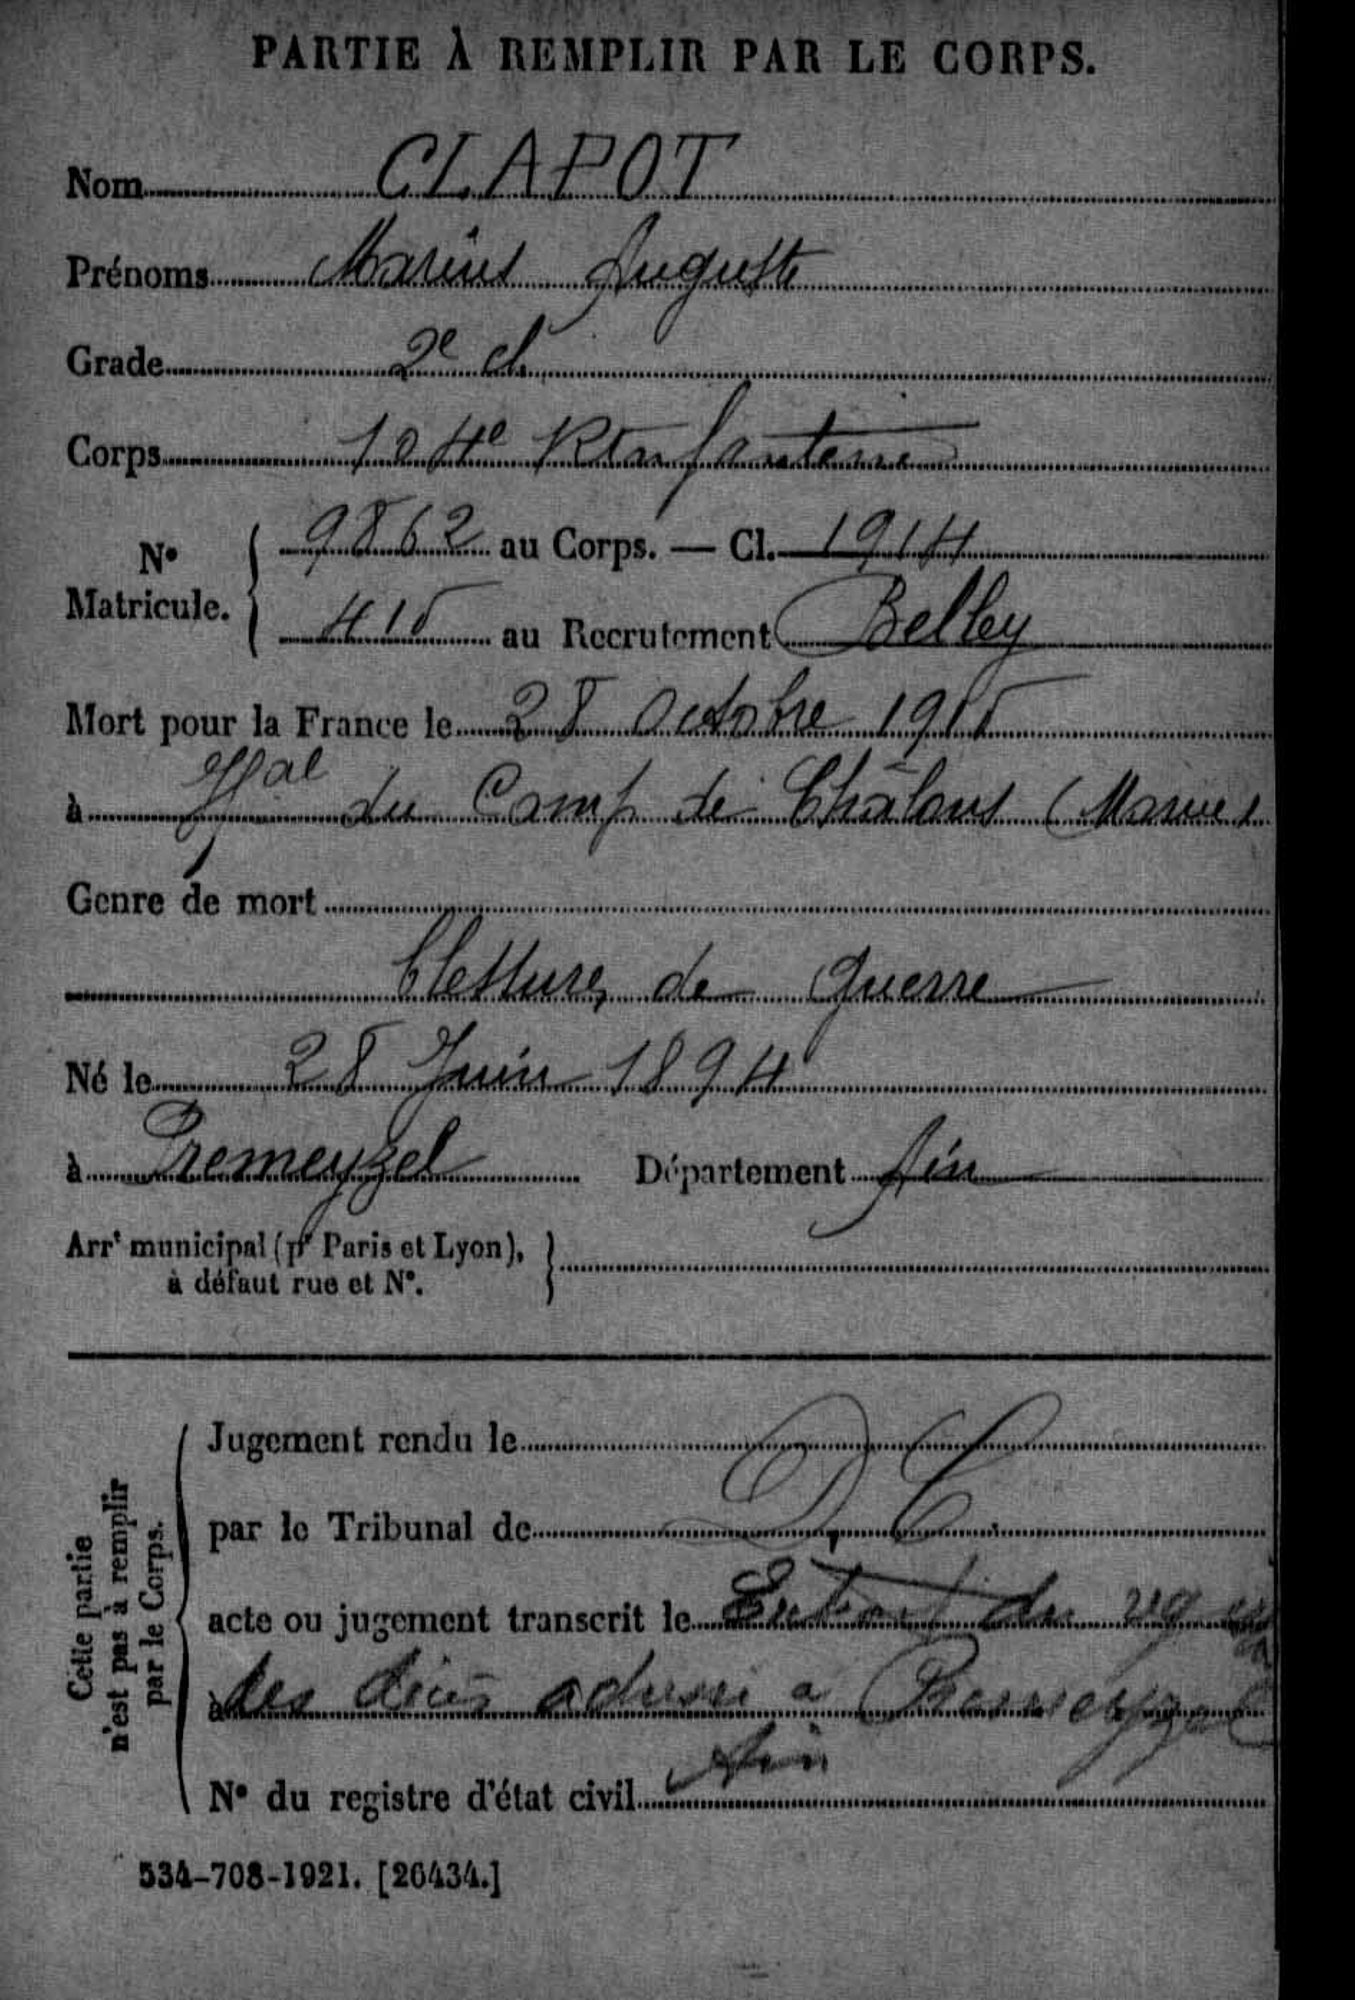 PARTIE À REMPLIR PAR LE CORPS.
Nom CLAPOT
Prénoms Marius Auguste
Grade 2e cl.
Corps 104e Rt Infanterie
No Matricule. { 9862 au Corps. — Cl. 1914
415 au Recrutement Belley
Mort pour la France le 28 Octobre 1915
à Hal du Camp de Châlons (Marne)
Genre de mort
blessures de guerre
Né le 28 Juin 1894
à Premeyzel Département Ain
Arrt municipal (pr Paris et Lyon),
à défaut rue et No.
Cette partie
n'est pas à remplir
par le Corps.
Jugement rendu le
par le Tribunal de D. C.
acte ou jugement transcrit le Extrait du
à des décès à Premeyzel
Ain
No du registre d'état civil
534-708-1921. [26434.]